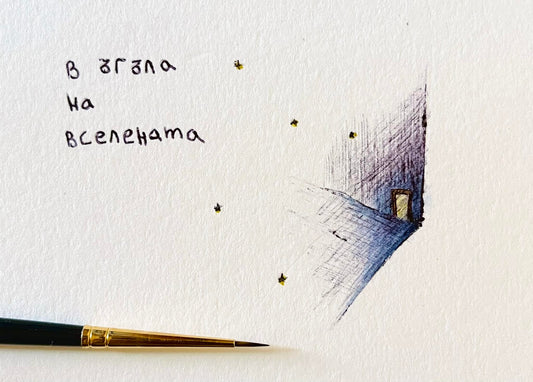 В ъгъла
на
Вселената